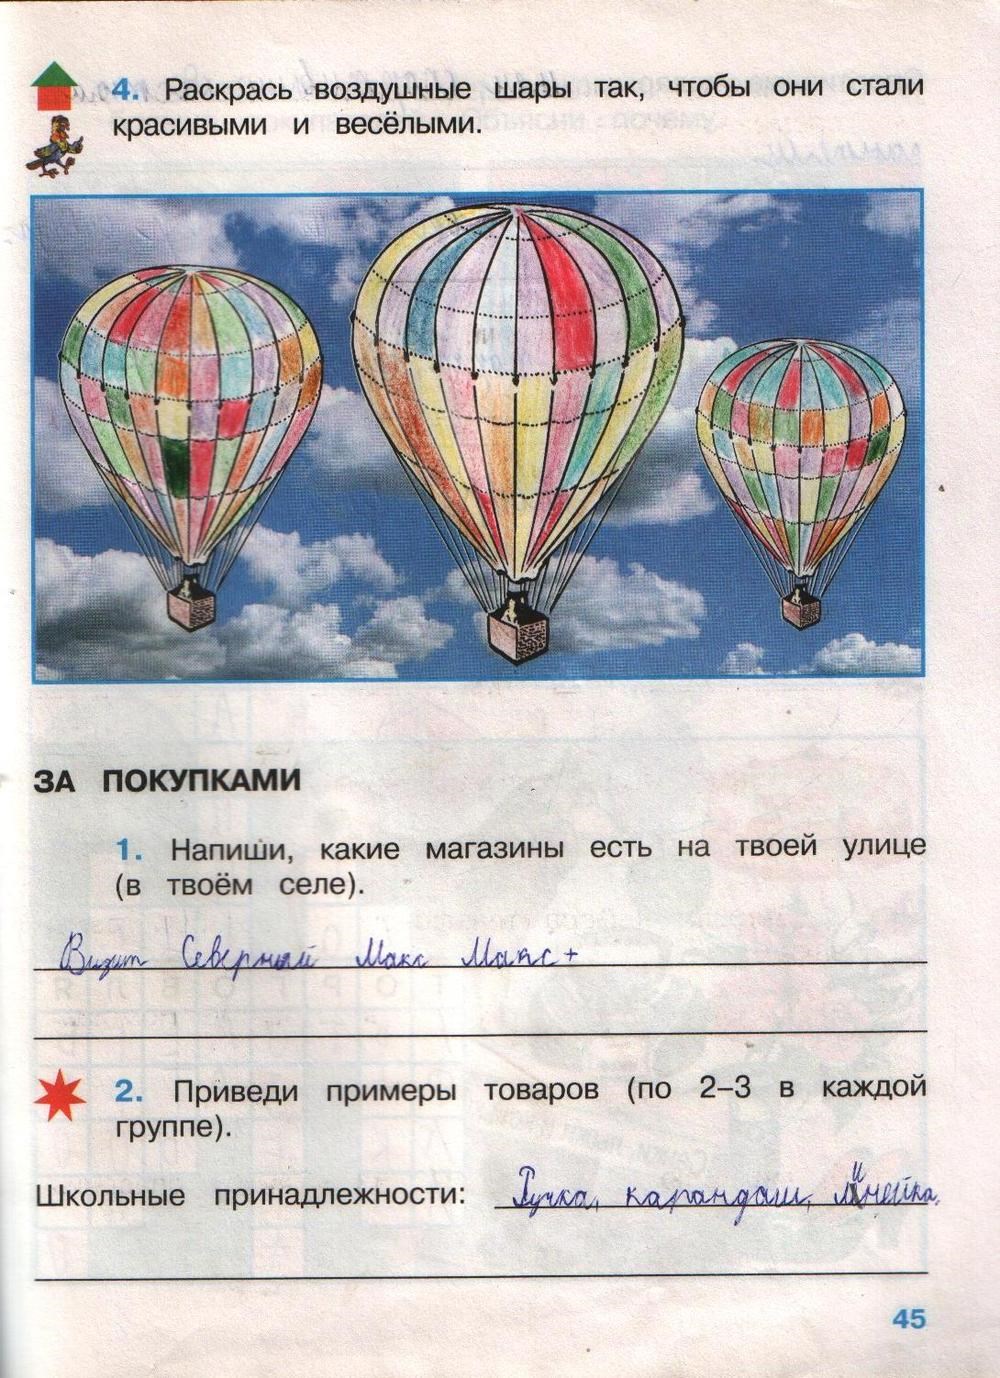 4. Раскрась воздушные шары так, чтобы они стали
красивыми и весёлыми.
ЗА ПОКУПКАМИ
1. Напиши, какие магазины есть на твоей улице
(в твоём селе).
Визит Северный Макс Макс+
2. Приведи примеры товаров (по 2–3 в каждой
группе).
Школьные принадлежности: Ручка, карандаш, линейка.
45